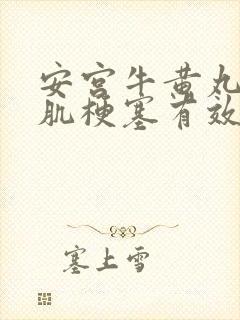 安宫牛黄丸
肌梗塞有效
塞上雪